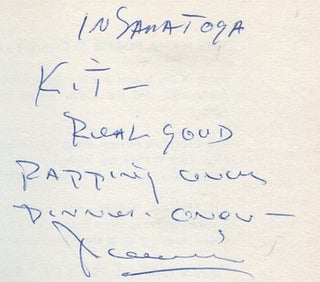 IN SARATOGA
KIT —
REAL GOOD
RAPPING OVER
DINNER.